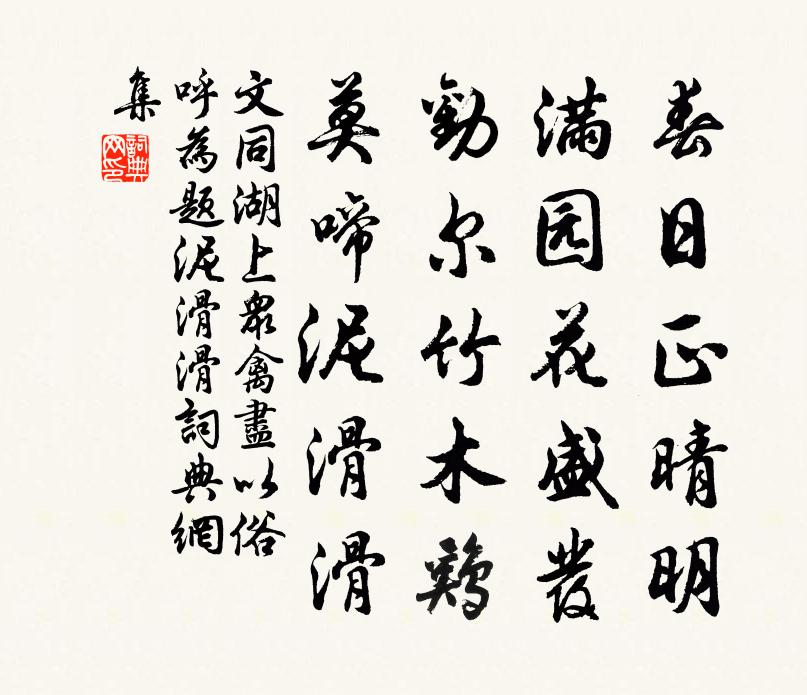 春日正晴明
满园花盛發
勸尔竹木鷄
莫啼泥滑滑
文同湖上眾禽盡以俗
呼為题泥滑滑詞典網
集
詞典
网印